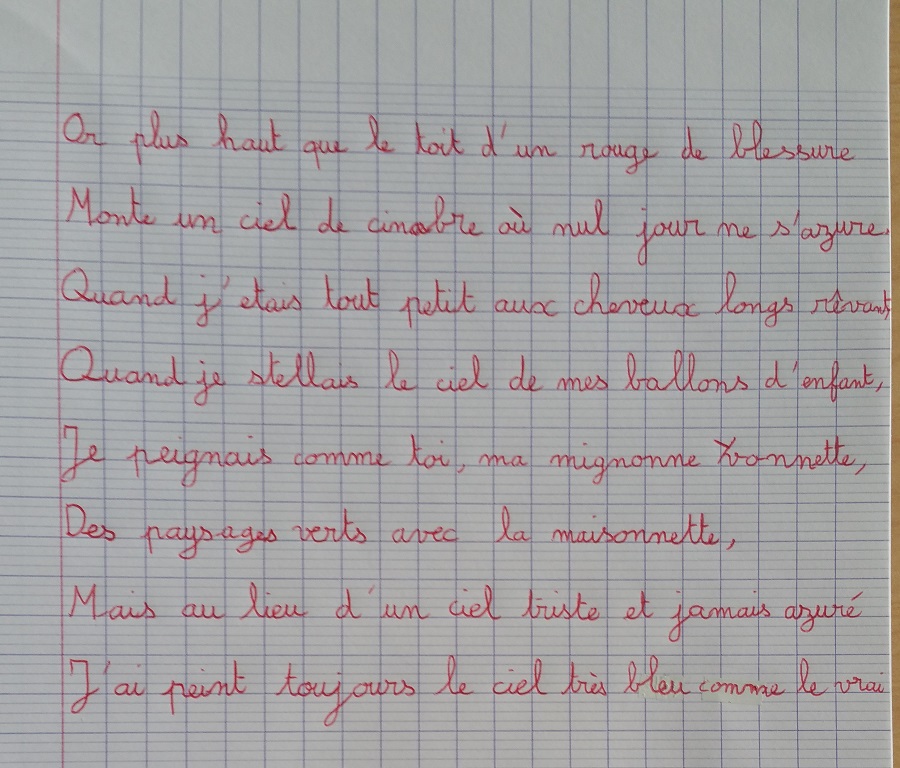 Or plus haut que le toit d'un rouge de blessure
Monte un ciel de cinabre où nul jour ne s'azure.
Quand j'etais tout petit aux cheveux longs rêvant
Quand je stellais le ciel de mes ballons d'enfant,
Je peignais comme toi, ma mignonne Yvonnette,
Des paysages verts avec la maisonnette,
Mais au lieu d'un ciel triste et jamais azuré
J'ai peint toujours le ciel très bleu comme le vrai